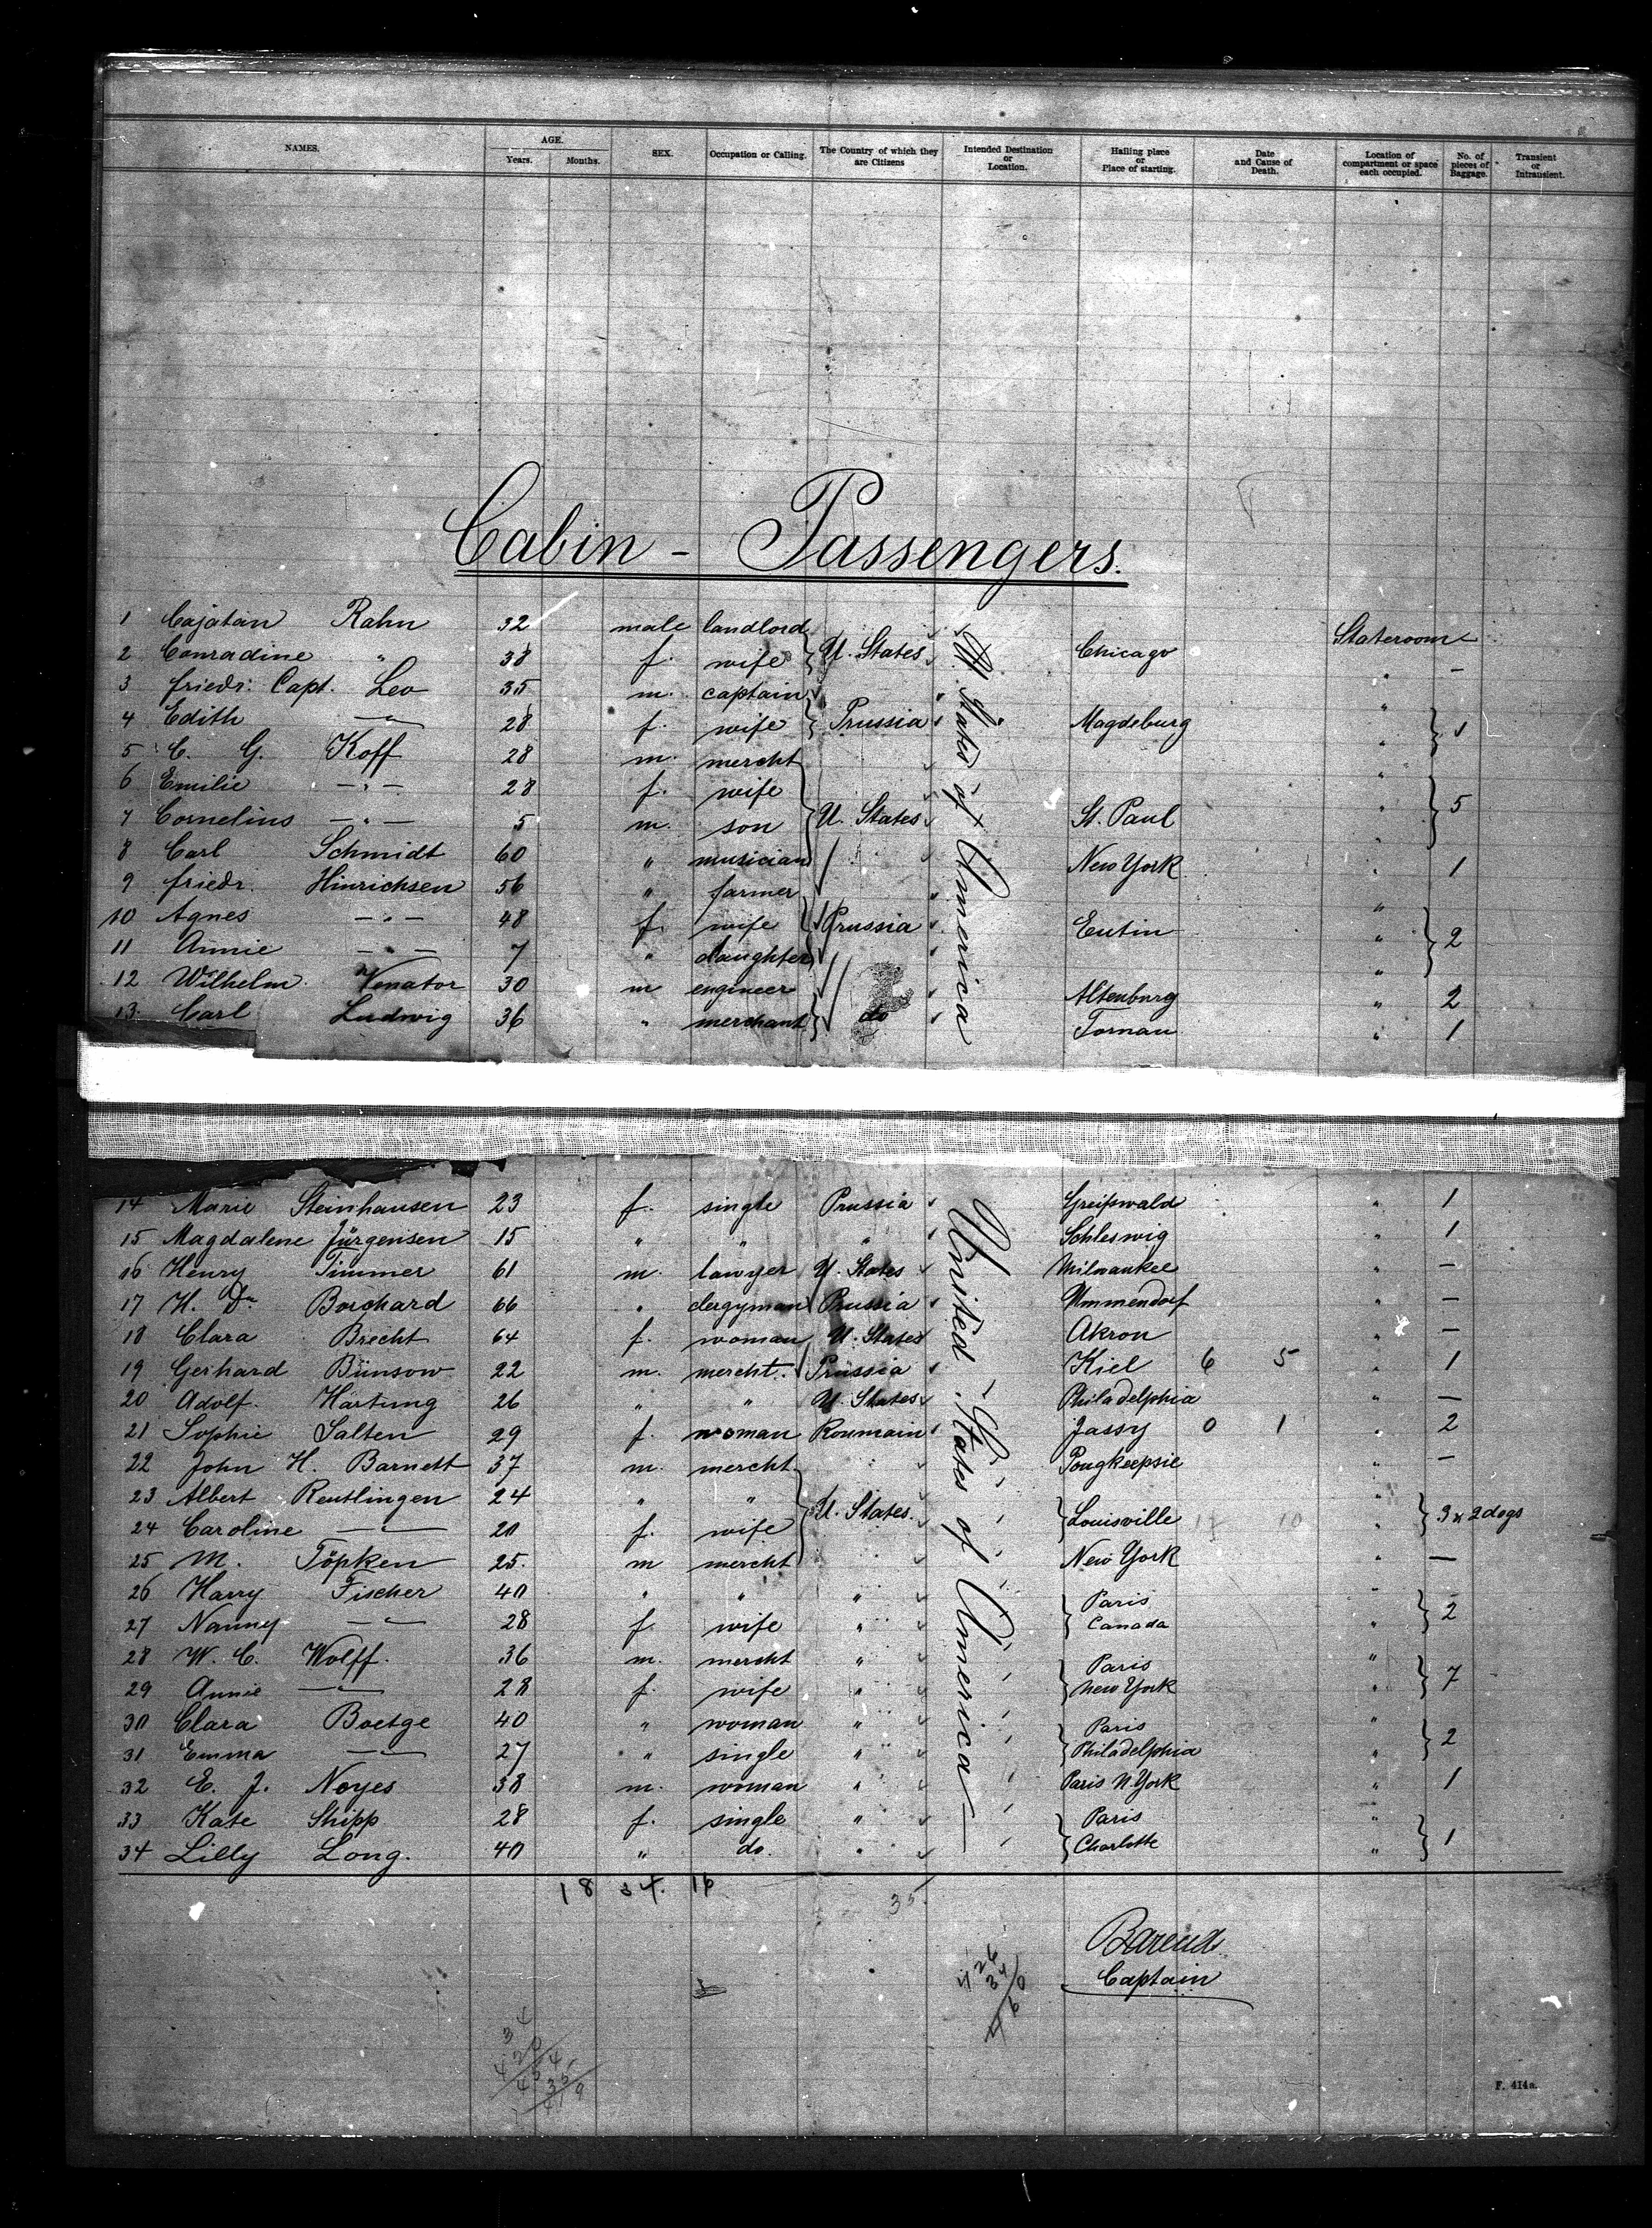 NAMES. AGE. SEX. Occupation or Calling. The Country of which they are Citizens Intended Destination or Location. Hailing place or Place of starting. Date and Cause of Death. Location of compartment or space each occupied. No. of pieces of Baggage. Transient or Intransient.
Years. Months.
Cabin - Passengers.
1 Cajatan Rahn 32 male landlord Stateroom
2 Conradine " 38 f. wife } U. States Chicago " -
3 friedr. Capt. Leo 35 m. captain "
4 Edith - " - 28 f. wife } Prussia Magdeburg " } 1
5 C. G. Koff 28 m. mercht "
6 Emilie - " - 28 f. wife " } 5
7 Cornelius - " - 5 m. son } U. States St. Paul "
8 Carl Schmidt 60 " musician New York " 1
9 friedr. Hinrichsen 56 " farmer "
10 Agnes - " - 48 f. wife } Prussia Eutin " } 2
11 Annie - " - 7 " daughter "
12 Wilhelm Venator 30 m engineer Altenburg " 2
13 Carl Ludwig 36 " merchant } do Tornau " 1
U. States of America
14 Marie Steinhausen 23 f. single Prussia Greifswald " 1
15 Magdalene Jürgensen 15 " " " Schleswig " 1
16 Henry Timmer 61 m. lawyer U. States Milwaukee " -
17 H. Dr Borchard 66 " clergyman Prussia Ummendorf " -
18 Clara Brecht 64 f. woman U. States Akron " -
19 Gerhard Bünsow 22 m. mercht. Prussia Kiel 6 5 " 1
20 Adolf. Hartung 26 " " U. States Philadelphia " -
21 Sophie Salten 29 f. woman Roumain Jassy 0 1 " 2
22 John H. Barnett 37 m. mercht Pougkeepsie " -
23 Albert Reutlingen 24 " " "
24 Caroline - " - 20 f. wife } U. States. } Louisville 17 10 " } 3 & 2 dogs
25 M. Töpken 25. m mercht New York " -
26 Harry Fischer 40 " " " Paris "
27 Nanny - " - 28 f. wife " } Canada " } 2
28 W. C. Wolff. 36 m. mercht " Paris "
29 Annie - " - 28 f. wife " } New York " } 7
30 Clara Boetge 40 " woman " Paris "
31 Emma - " - 27 " single " } Philadelphia " } 2
32 E. J. Noyes 38 m. woman " Paris N. York " 1
33 Kate Shipp 28 f. single " Paris "
34 Lilly Long. 40 " do. " } Charlotte " } 1
United States of America
18 34. 16
35.
Captain
F. 414a.